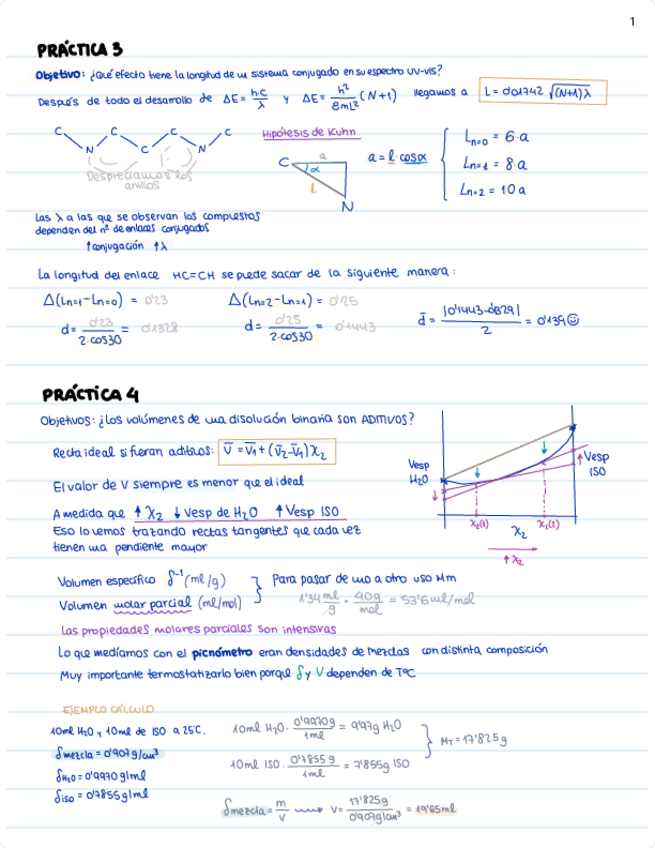 1
PRÁCTICA 3
Objetivo: ¿Qué efecto tiene la longitud de un sistema conjugado en su espectro UV-vis?
Después de todo el desarrollo de ΔE = h·c/λ y ΔE = h²/8mL² (N+1) llegamos a L = 0'01742 √(N+1)λ
C C C C
N C N
Despreciamos los anillos
Hipótesis de Kuhn
C a α l N
a = l·cosα
Ln=0 = 6·a
Ln=1 = 8·a
Ln=2 = 10a
Las λ a las que se observan los compuestos
dependen del nº de enlaces conjugados
↑conjugación ↑λ
La longitud del enlace HC=CH se puede sacar de la siguiente manera:
Δ(Ln=1-Ln=0) = 0'23 Δ(Ln=2-Ln=1) = 0'25
d = 0'23/2·cos30 = 0'1328 d = 0'25/2·cos30 = 0'1443 d̄ = |0'1443-0'1329|/2 = 0'139
PRÁCTICA 4
Objetivos: ¿Los volúmenes de una disolución binaria son ADITIVOS?
Recta ideal si fueran aditivos: V̄ = V̄1 + (V̄2-V̄1)X2
El valor de V siempre es menor que el ideal
A medida que ↑X2 ↓Vesp de H2O ↑Vesp ISO
Eso lo vemos trazando rectas tangentes que cada vez
tienen una pendiente mayor
Vesp H2O
↑Vesp ISO
X2(1) X2 X2(2)
↑X2
Volumen específico δ⁻¹ (ml/g)
Volumen molar parcial (ml/mol)
Para pasar de uno a otro uso Mm
1'34 ml/g · 40g/mol = 53'6 ml/mol
Las propiedades molares parciales son intensivas
Lo que medíamos con el picnómetro eran densidades de mezclas con distinta composición
Muy importante termostatizarlo bien porque δ y V dependen de TºC
EJEMPLO CÁLCULO
10ml H2O y 10ml de ISO a 25ºC.
δmezcla = 0'907 g/cm³
δH2O = 0'9970 g/ml
δiso = 0'7855 g/ml
10ml H2O · 0'9970g/1ml = 9'97g H2O
10ml ISO · 0'7855g/1ml = 7'855g ISO
MT = 17'825g
δmezcla = m/V → V = 17'825g/0'907g/cm³ = 19'65ml